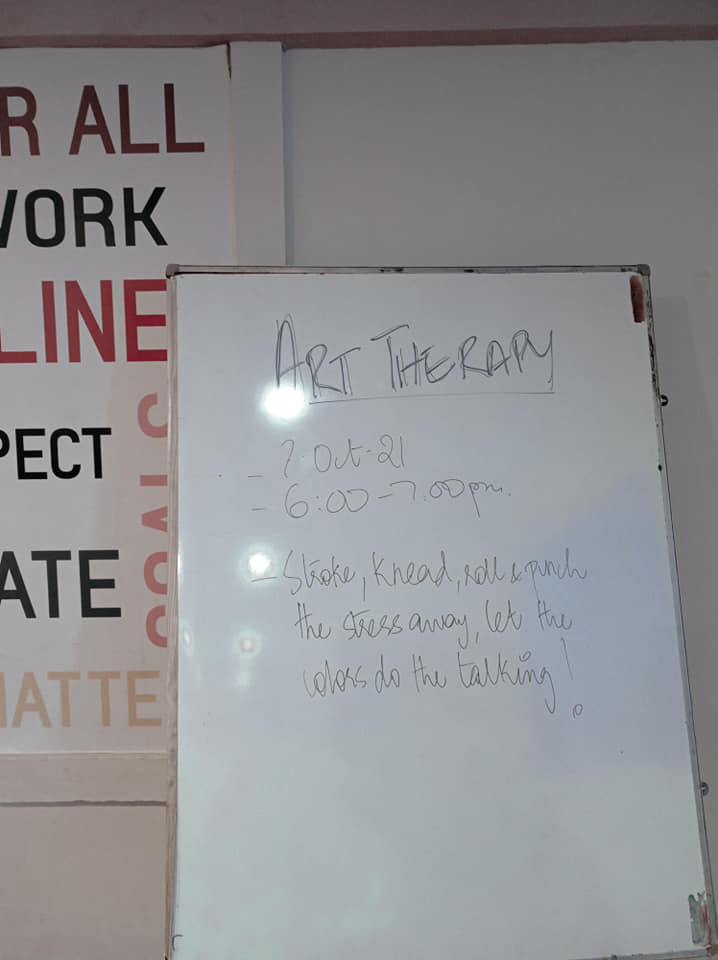 R ALL
WORK
LINE
PECT
GOALS
ATE
MATTE
ART THERAPY
- 7. Oct. 21
- 6:00 - 7.00pm.
- Stroke, Knead, roll & punch
the stress away, let the
colors do the talking!